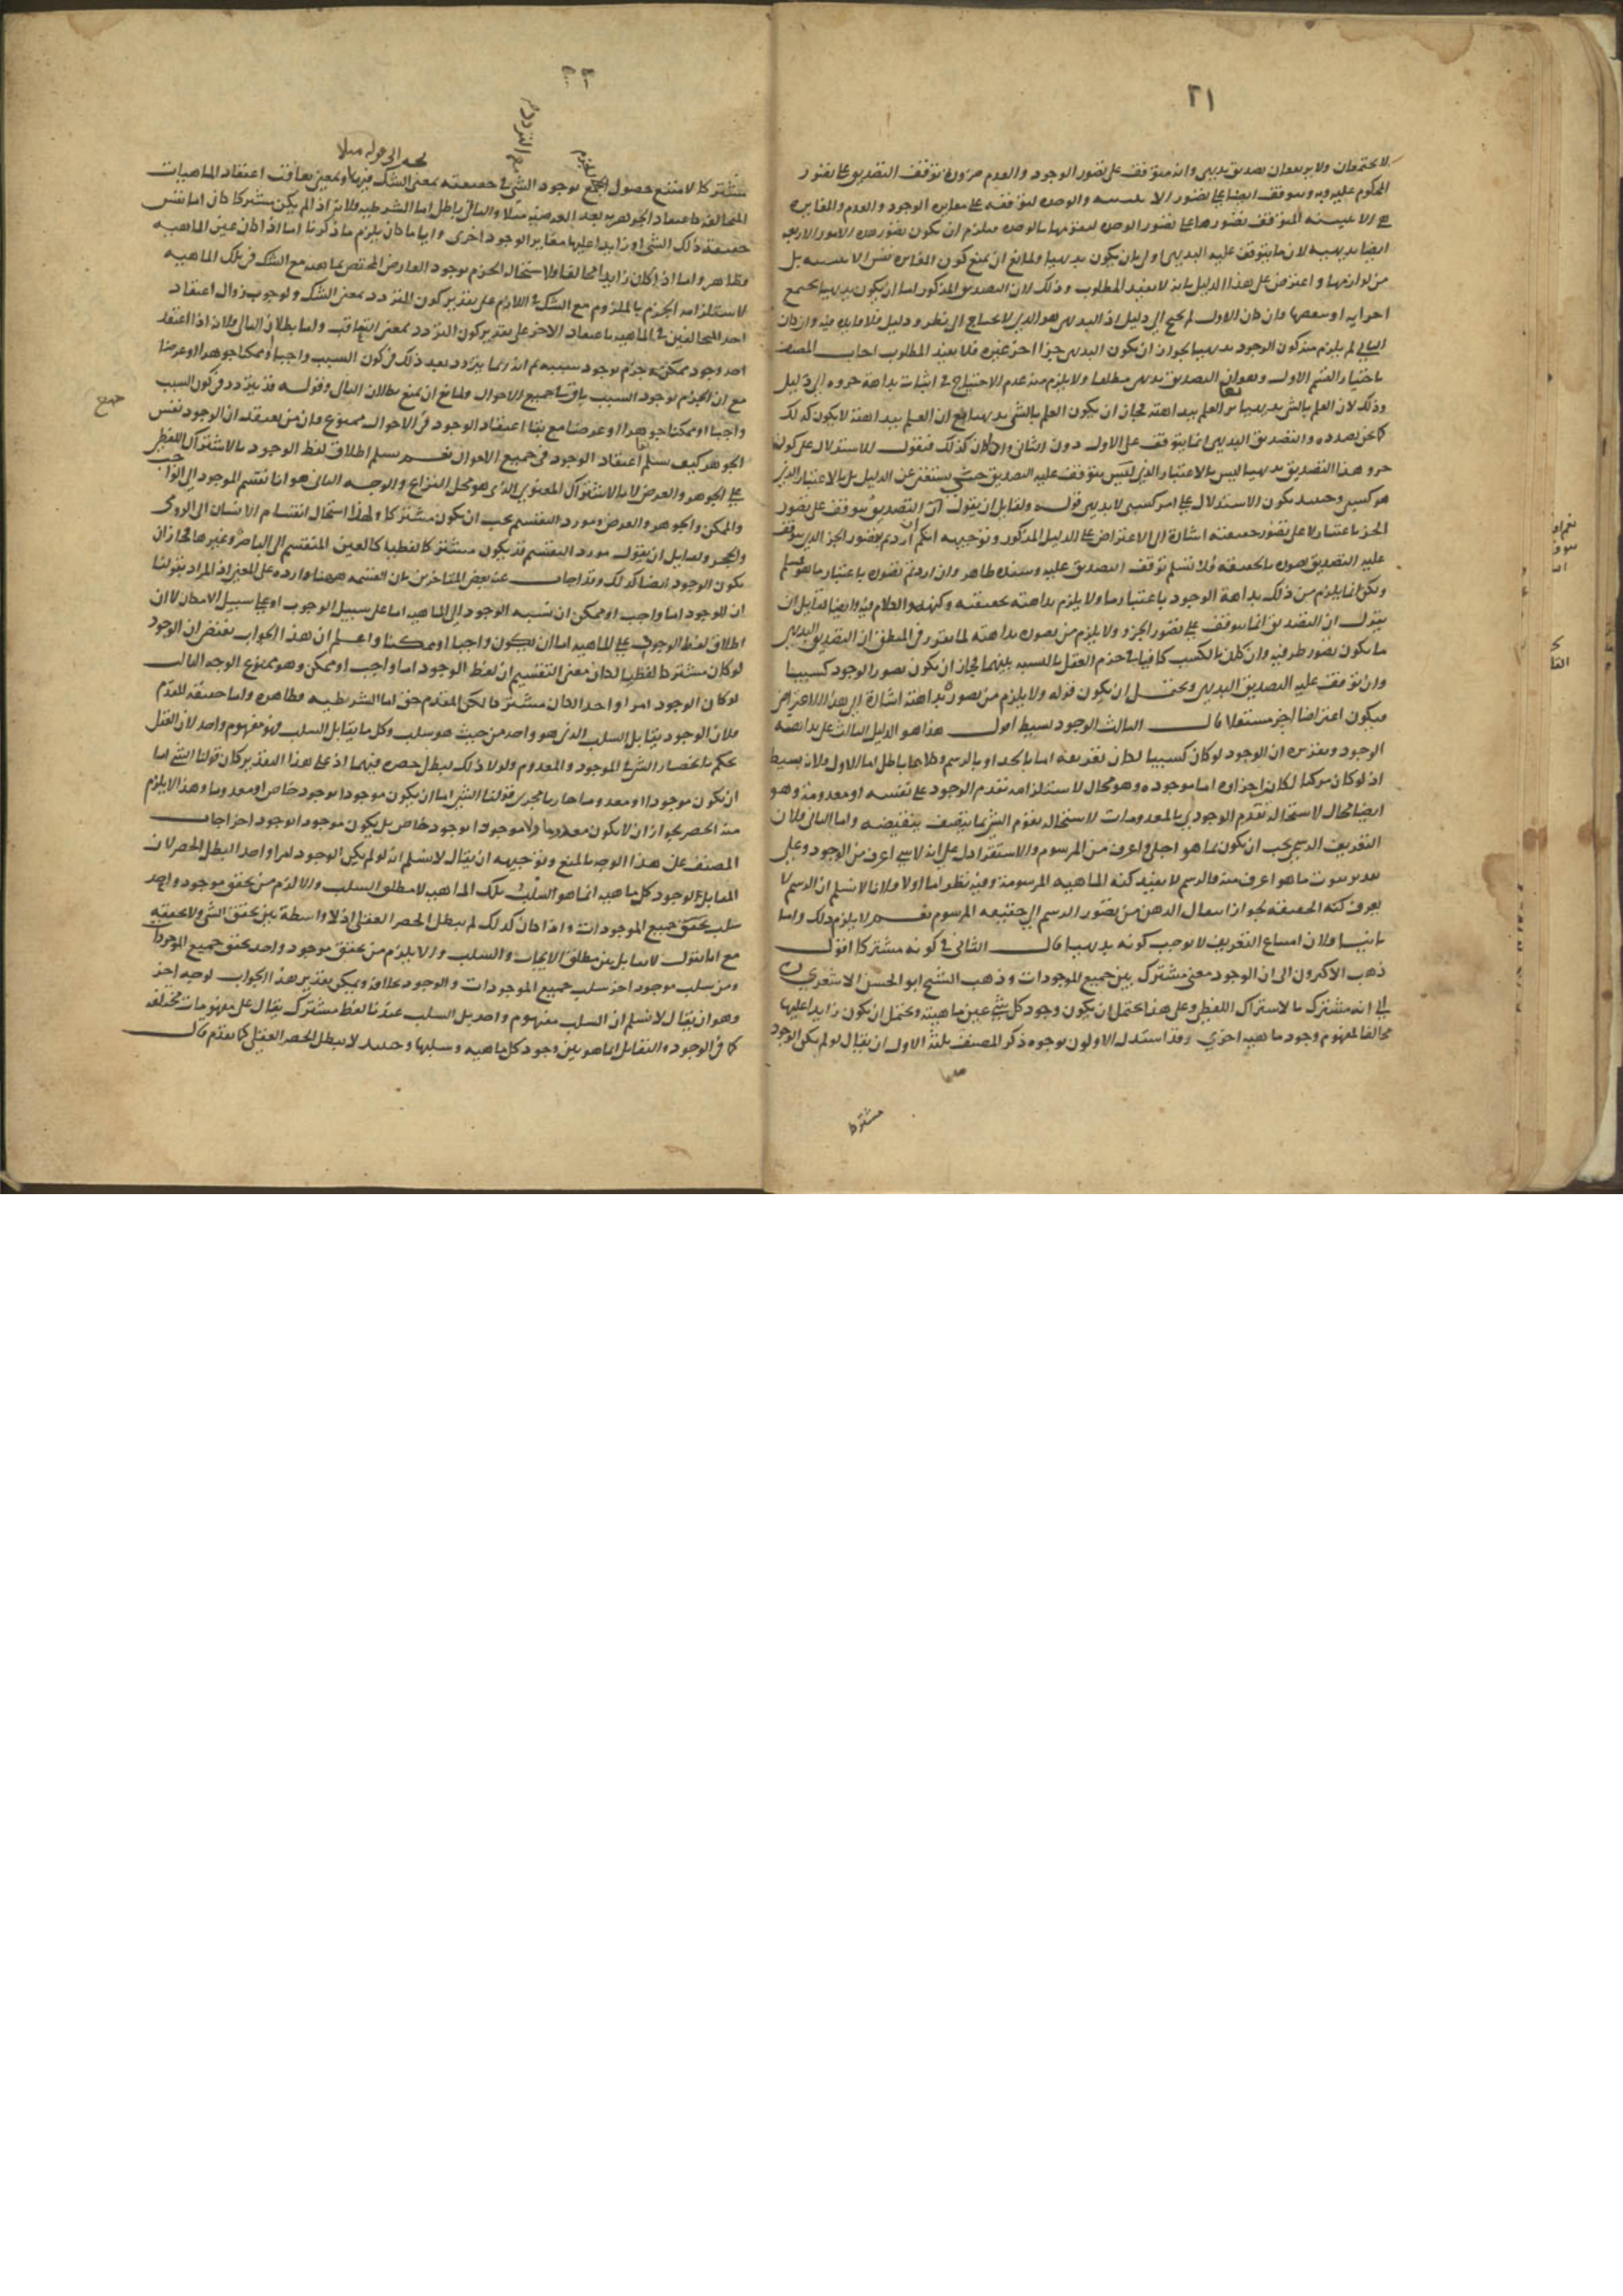 ٢١
لا يجتمعان ولا يرتفعان تصديق بديهي وانه متوقف على تصور الوجود والعدم ضرورة توقف التصديق على تصور
المحكوم عليه وبه ويتوقف ايضا على تصور الاثنينية والوحدة لتوقفه على مغايرة الوجود والعدم والمغايرة
هي الاثنينية المتوقف تصورها على تصور الوحدة لتقومها بالوحدة فيلزم ان يكون تصور هذه الامور الاربعة
ايضا بديهية لان ما يتوقف عليه البديهي اولى بان يكون بديهيا ولمانع ان يمنع كون المغايرة نفس الاثنينية بل
من لوازمها واعترض على هذا الدليل بانه لا يفيد المطلوب وذلك لان التصديق المذكور اما ان يكون بديهيا بجميع
اجزايه او ببعضها فان كان الاول لم يحتج الى دليل اذ البديهي هو الذي لا يحتاج الى نظر ودليل فلا فايدة فيه وان كان
الثاني لم يلزم منه كون الوجود بديهيا لجواز ان يكون البديهي جزءا اخر غيره فلا يفيد المطلوب اجاب المصنف
باختيار القسم الاول وهو ان التصديق بديهي مطلقا ولا يلزم منه عدم الاحتياج في اثبات بداهة جزوه الى دليل
وذلك لان العلم بالشي بديهيا غير العلم ببداهته فجاز ان يكون العلم بالشي بديهيا مع ان العلم ببداهته لا يكون كذلك
كما نحن بصدده والتصديق البديهي انما يتوقف على الاول دون الثاني واذا كان كذلك فنقول الاستدلال على كون
جزو هذا التصديق بديهيا ليس بالاعتبار الذي يتوقف عليه التصديق حتى يستغني عن الدليل بل بالاعتبار الذي
هو كسبي وحينئذ يكون الاستدلال على امر كسبي لا بديهي قوله ولقايل ان يقول ان التصديق يتوقف على تصور
الجزء باعتبار لا على تصور حقيقته اشارة الى الاعتراض على الدليل المذكور وتوجيهه انكم ان اردتم بتصور الجزء الذي يتوقف
عليه التصديق تصوره بالحقيقة فلا نسلم توقف التصديق عليه وسنده ظاهر وان اردتم تصوره باعتبار ما فهو مسلم
ولكن انما يلزم من ذلك بداهة الوجود باعتبار ما ولا يلزم بداهته بحقيقته وكنهه والكلام فيه وايضا لقايل ان
يقول ان التصديق انما يتوقف على تصور الجزء ولا يلزم من تصوره بداهته لما تقرر في المنطق ان التصديق البديهي
ما يكون تصور طرفيه وان كان بالكسب كافيا في جزم العقل بالنسبة بينهما فجاز ان يكون تصور الوجود كسبيا
وان توقف عليه التصديق البديهي ويحتمل ان يكون قوله ولا يلزم من تصوره بداهته اشارة الى هذا الاعتراض
فيكون اعتراضا اخر مستقلا قال الثالث الوجود بسيط اقول هذا هو الدليل الثالث على بداهة
الوجود وتقريره ان الوجود لو كان كسبيا لكان تعريفه اما بالحد او بالرسم وكلاهما باطل اما الاول فلانه بسيط
اذ لو كان مركبا لكان اجزاؤه اما موجودة وهو محال لاستلزامه تقدم الوجود على نفسه او معدومة وهو
ايضا محال لاستحالة تقدم الوجودي بالمعدومات لاستحالة تقوم الشي بما يتصف بنقيضه واما الثاني فلان
التعريف الرسمي يجب ان يكون بما هو اجلى واعرف من المرسوم والاستقراء دل على انه لا شي اعرف من الوجود وعلى
تقدير ثبوت ما هو اعرف منه فالرسم لا يفيد كنه الماهية المرسومة وفيه نظر اما اولا فلانا لا نسلم ان الرسم لا
يعرف كنه الحقيقة لجواز انتقال الذهن من تصور الرسم الى حقيقة المرسوم نعم لا يلزم ذلك واما
ثانيا فلان امتناع التعريف لا يوجب كونه بديهيا قال الثاني في كونه مشتركا اقول
ذهب الاكثرون الى ان الوجود معنى مشترك بين جميع الموجودات وذهب الشيخ ابو الحسن الاشعري
الى انه مشترك بالاشتراك اللفظي وعلى هذا يحتمل ان يكون وجود كل شي عين ماهيته ويحتمل ان يكون زايدا عليها
مخالفا لمفهوم وجود ماهية اخرى وقد استدل الاولون بوجوه ذكر المصنف ثلثة الاول ان يقال لو لم يكن الوجود
مشتركا
٢٢
مشتركا لامتنع حصول الجزم بوجود الشي في حقيقته بمعنى الشك فيها وبمعنى تعاقب اعتقاد الماهيات
المتخالفة كاعتقاد الجوهرية بعد العرضية مثلا والتالي باطل اما الشرطية فلانه اذا لم يكن مشتركا كان اما نفس
حقيقة ذلك الشي او زايدا عليها مغايرا لوجود اخرى وايا ما كان يلزم ما ذكرنا اما اذا كان عين الماهية
فظاهر واما اذا كان زايدا مخالفا فلاستحالة الجزم بوجود العارض المختص بماهية مع الشك في تلك الماهية
لاستلزامه الجزم بالملزوم مع الشك في اللازم على تقدير كون التردد بمعنى الشك ولوجوب زوال اعتقاد
احد المتخالفين في الماهية باعتقاد الاخر على تقدير كون التردد بمعنى التعاقب واما بطلان التالي فلانه اذا اعتقد
احد وجود ممكن وجزم بوجود سببه ثم انه ربما يتردد بعد ذلك في كون السبب واجبا او ممكنا جوهرا او عرضا
مع ان الجزم بوجود السبب باق في جميع الاحوال ولمانع ان يمنع بطلان التالي وقوله قد يتردد في كون السبب
واجبا او ممكنا جوهرا او عرضا مع بقاء اعتقاد الوجود في الاحوال ممنوع فان من يعتقد ان الوجود نفس
الجوهر كيف يسلم بقاء اعتقاد الوجود في جميع الاحوال نعم يسلم اطلاق لفظ الوجود بالاشتراك اللفظي
على الجوهر والعرض لا بالاشتراك المعنوي الذي هو محل النزاع والوجه الثاني هو انا نقسم الموجود الى الواجب
والممكن والجوهر والعرض ومورد التقسيم يجب ان يكون مشتركا ولهذا استحال انقسام الانسان الى الرومي
والحجر ولقايل ان يقول مورد التقسيم قد يكون مشتركا لفظيا كالعين المنقسم الى الباصرة وغيرها فجاز ان
يكون الوجود ايضا كذلك وقد اجاب عنه بعض المتاخرين بان القسمة ههنا واردة على المعنى اذ المراد بقولنا
ان الوجود اما واجب او ممكن ان نسبة الوجود الى الماهية اما على سبيل الوجوب او على سبيل الامكان لا ان
اطلاق لفظ الوجود على الماهية اما ان يكون واجبا او ممكنا واعلم ان هذا الجواب يقتضي ان الوجود
لو كان مشتركا لفظيا لكان معنى التقسيم ان لفظ الوجود اما واجب او ممكن وهو ممنوع الوجه الثالث
لو كان الوجود امرا واحدا لكان مشتركا لكن المقدم حق اما الشرطية فظاهرة واما حقيقة المقدم
فلان الوجود يقابل السلب الذي هو واحد من حيث هو سلب وكل ما يقابل السلب فهو مفهوم واحد لان العقل
يحكم بانحصار الشي في الموجود والمعدوم ولولا ذلك لبطل حصره فيهما اذ على هذا التقدير كان قولنا الشي اما
ان يكون موجودا او معدوما جاريا مجرى قولنا الشي اما ان يكون موجودا بوجود خاص او معدوما وهذا لا يلزم
منه الحصر لجواز ان لا يكون معدوما ولا موجودا بوجود خاص بل يكون موجودا بوجود اخر اجاب
المصنف عن هذا الوجه بالمنع وتوجيهه ان يقال لا نسلم انه لو لم يكن الوجود امرا واحدا لبطل الحصر لان
المقابل لوجود كل ماهية انما هو السلب تلك الماهية لا مطلق السلب والا لزم من تحقق موجود واحد
سلب تحقق جميع الموجودات واذا كان كذلك لم يبطل الحصر العقلي اذ لا واسطة بين تحقق الشي ولا تحققه
مع انا نقول لا تقابل بين مطلق الايجاب والسلب والا يلزم من تحقق موجود واحد تحقق جميع الموجودات
ومن سلب موجود اخر سلب جميع الموجودات والوجود بخلافه ويمكن تقرير هذا الجواب بوجه اخر
وهو ان يقال لا نسلم ان السلب مفهوم واحد بل السلب عندنا لفظ مشترك يقال على مفهومات مختلفة
كما في الوجود والتقابل انما هو بين وجود كل ماهية وسلبها وحينئذ لا يبطل الحصر العقلي كما تقدم قال